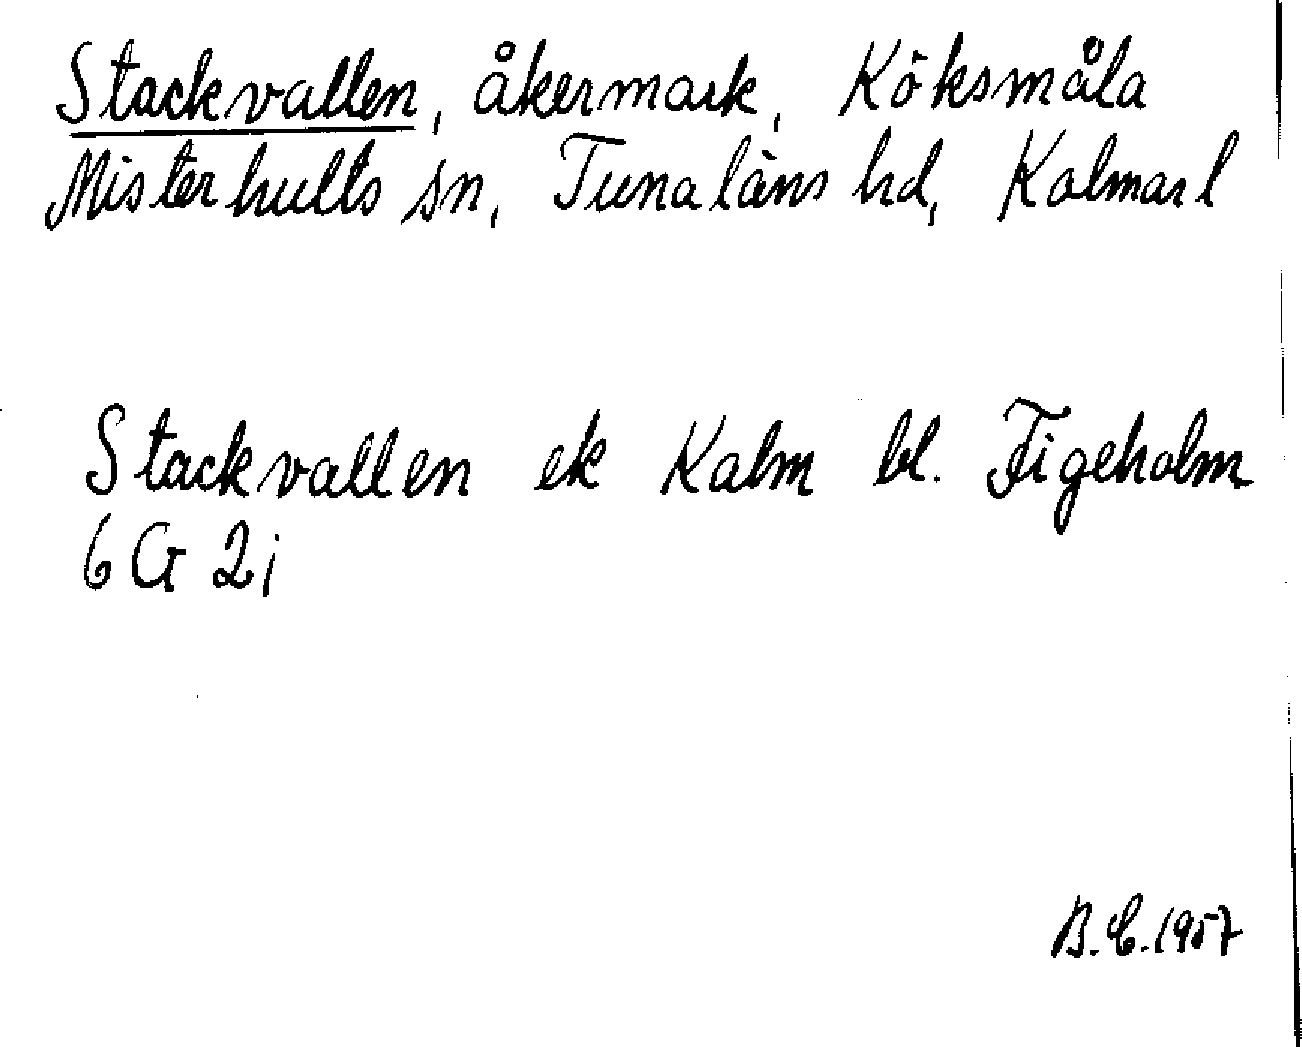 Stackvallen, åkermark, Köksmåla
Misterhults sn, Tunaläns hd, Kalmar l
Stackvallen ek Kalm bl. Figeholm
6 G 2i
B.C. 1957